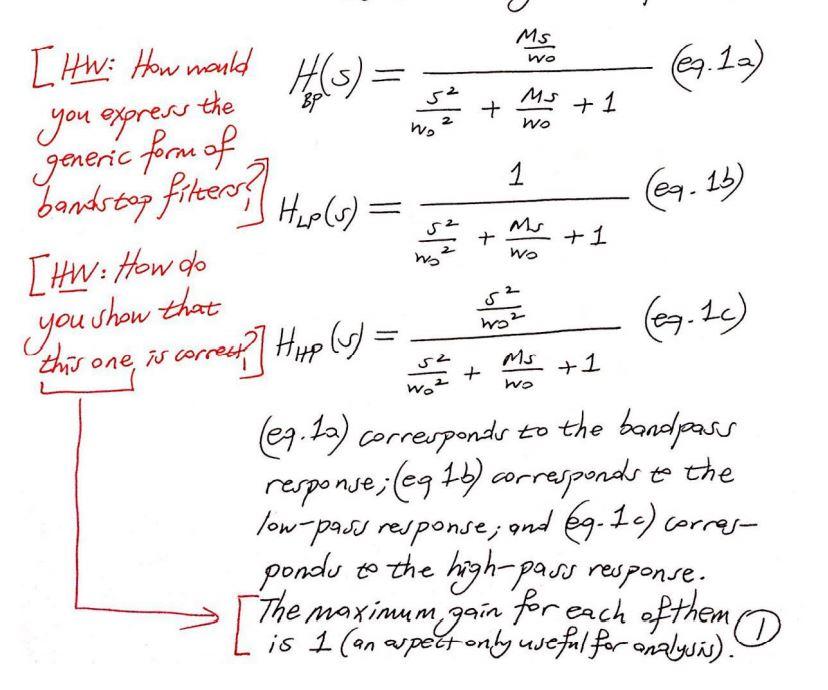 [HW: How would
you express the
generic form of
bandstop filters?]
H_BP(s) = (Ms/w₀) / (s²/w₀² + Ms/w₀ + 1) (eq.1a)
H_LP(s) = 1 / (s²/w₀² + Ms/w₀ + 1) (eq.1b)
[HW: How do
you show that
this one is correct?]
H_HP(s) = (s²/w₀²) / (s²/w₀² + Ms/w₀ + 1) (eq.1c)
(eq.1a) corresponds to the bandpass
response; (eq 1b) corresponds to the
low-pass response; and (eq.1c) corres-
ponds to the high-pass response.
[The maximum gain for each of them
is 1 (an aspect only useful for analysis).
1